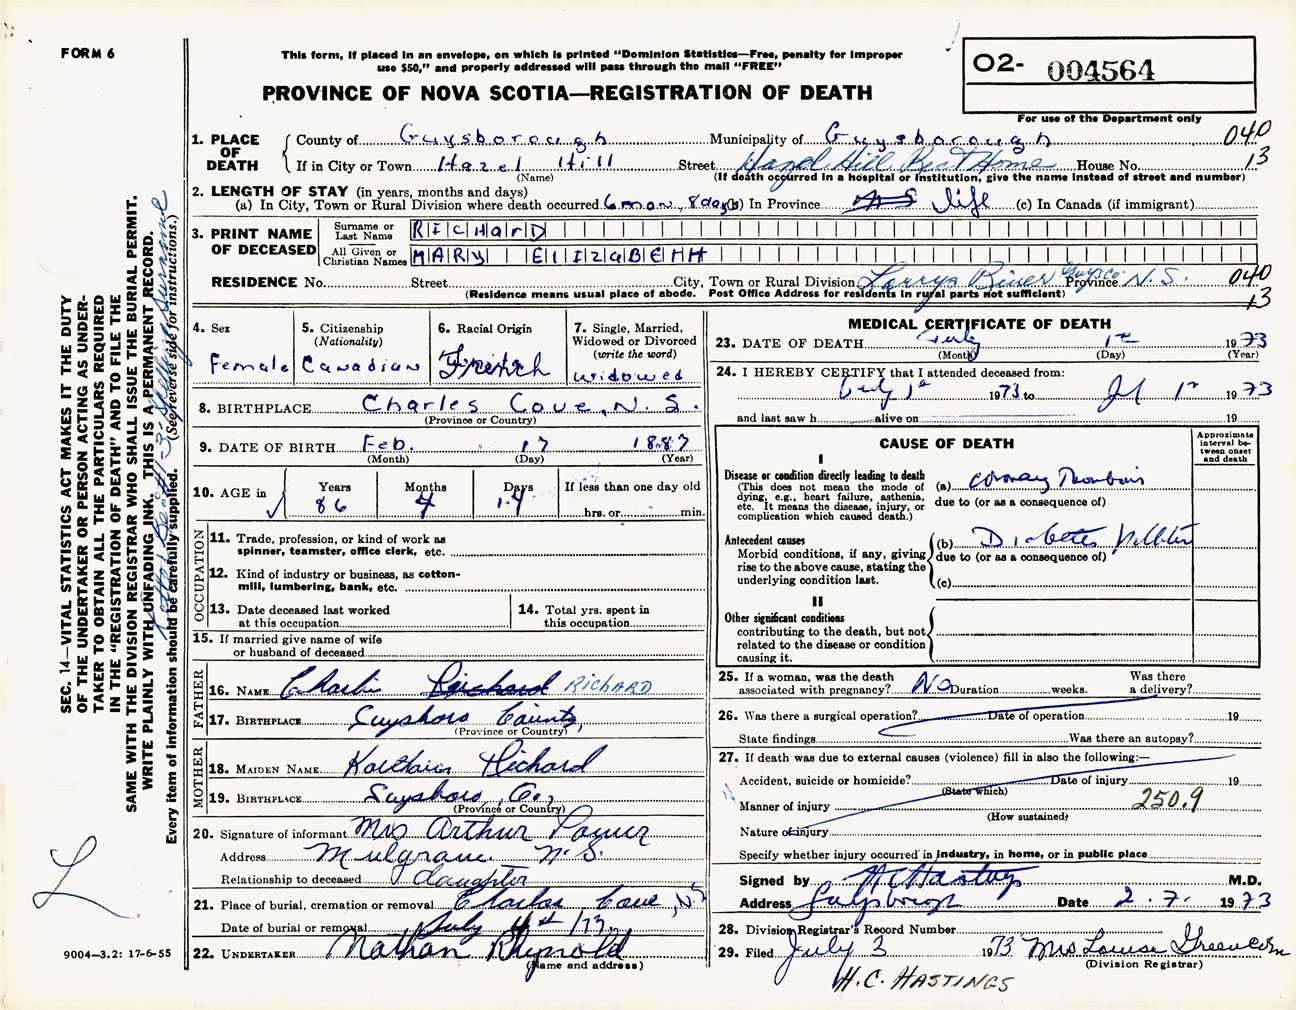 FORM 6
This form, if placed in an envelope, on which is printed "Dominion Statistics—Free, penalty for improper
use $50," and properly addressed will pass through the mail "FREE"
PROVINCE OF NOVA SCOTIA—REGISTRATION OF DEATH
02- 004564
For use of the Department only
1. PLACE OF DEATH { County of Guysborough Municipality of Guysborough 040
If in City or Town Hazel Hill Street Hazel Hill Rest Home House No. 13
(Name) (If death occurred in a hospital or institution, give the name instead of street and number)
2. LENGTH OF STAY (in years, months and days)
(a) In City, Town or Rural Division where death occurred 6 mon, 8 days (b) In Province life (c) In Canada (if immigrant)
3. PRINT NAME OF DECEASED
Surname or Last Name RICHARD
All Given or Christian Names MARY ELIZABEHH
RESIDENCE No. Street City, Town or Rural Division Larrys River Guys Co Province N.S. 040
(Residence means usual place of abode. Post Office Address for residents in rural parts not sufficient) 13
4. Sex Female
5. Citizenship (Nationality) Canadian
6. Racial Origin French
7. Single, Married, Widowed or Divorced (write the word) widowed
8. BIRTHPLACE Charles Cove, N.S.
(Province or Country)
9. DATE OF BIRTH Feb. 17 1887
(Month) (Day) (Year)
10. AGE in Years 86 Months 4 Days 14 If less than one day old
hrs. or min.
OCCUPATION
11. Trade, profession, or kind of work as
spinner, teamster, office clerk, etc.
12. Kind of industry or business, as cotton-
mill, lumbering, bank, etc.
13. Date deceased last worked
at this occupation
14. Total yrs. spent in
this occupation
15. If married give name of wife
or husband of deceased
FATHER
16. NAME Charlie Richard RICHARD
17. BIRTHPLACE Guysboro County,
(Province or Country)
MOTHER
18. MAIDEN NAME Richard
19. BIRTHPLACE Guysboro, Co,
(Province or Country)
20. Signature of informant Mrs Arthur
Address Mulgrave N.S.
Relationship to deceased daughter
21. Place of burial, cremation or removal Charlos Cove, N.S
Date of burial or removal July 4th /73
22. UNDERTAKER Nathan Reynold
(Name and address)
MEDICAL CERTIFICATE OF DEATH
23. DATE OF DEATH July 1st 1973
(Month) (Day) (Year)
24. I HEREBY CERTIFY that I attended deceased from:
July 1st 1973 to Jl 1st 1973
and last saw h alive on 19
CAUSE OF DEATH
Approximate interval between onset and death
I
Disease or condition directly leading to death
(This does not mean the mode of
dying, e.g., heart failure, asthenia,
etc. It means the disease, injury, or
complication which caused death.)
(a) Coronary Thrombosis
due to (or as a consequence of)
Antecedent causes
Morbid conditions, if any, giving
rise to the above cause, stating the
underlying condition last.
(b) Diabetes Mellitus
due to (or as a consequence of)
(c)
II
Other significant conditions
contributing to the death, but not
related to the disease or condition
causing it.
25. If a woman, was the death
associated with pregnancy? NO Duration weeks. Was there
a delivery?
26. Was there a surgical operation? Date of operation 19
State findings Was there an autopsy?
27. If death was due to external causes (violence) fill in also the following:—
Accident, suicide or homicide? Date of injury 19
(State which)
Manner of injury 250.9
(How sustained)
Nature of injury
Specify whether injury occurred in industry, in home, or in public place
Signed by H C Hastings M.D.
Address Guysborough Date 2.7. 1973
28. Division Registrar's Record Number
29. Filed July 3 1973 Mrs Louise Greencorn
(Division Registrar)
H.C. HASTINGS
SEC. 14—VITAL STATISTICS ACT MAKES IT THE DUTY
OF THE UNDERTAKER OR PERSON ACTING AS UNDER-
TAKER TO OBTAIN ALL THE PARTICULARS REQUIRED
IN THE "REGISTRATION OF DEATH" AND TO FILE THE
SAME WITH THE DIVISION REGISTRAR WHO SHALL ISSUE THE BURIAL PERMIT.
WRITE PLAINLY WITH UNFADING INK. THIS IS A PERMANENT RECORD.
Every item of information should be carefully supplied. (See reverse side for instructions.)
9004—3.2: 17-6-55